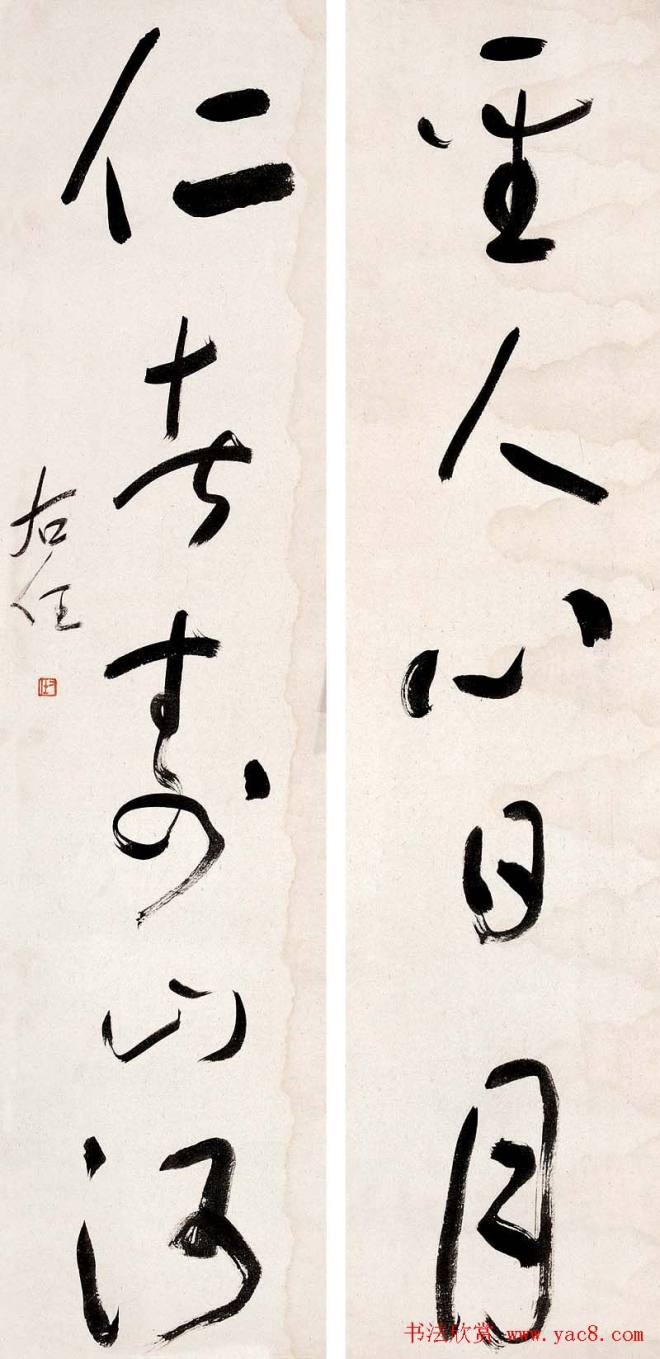 聖人心日月
仁者壽山河
右任
书法欣赏 www.yac8.com